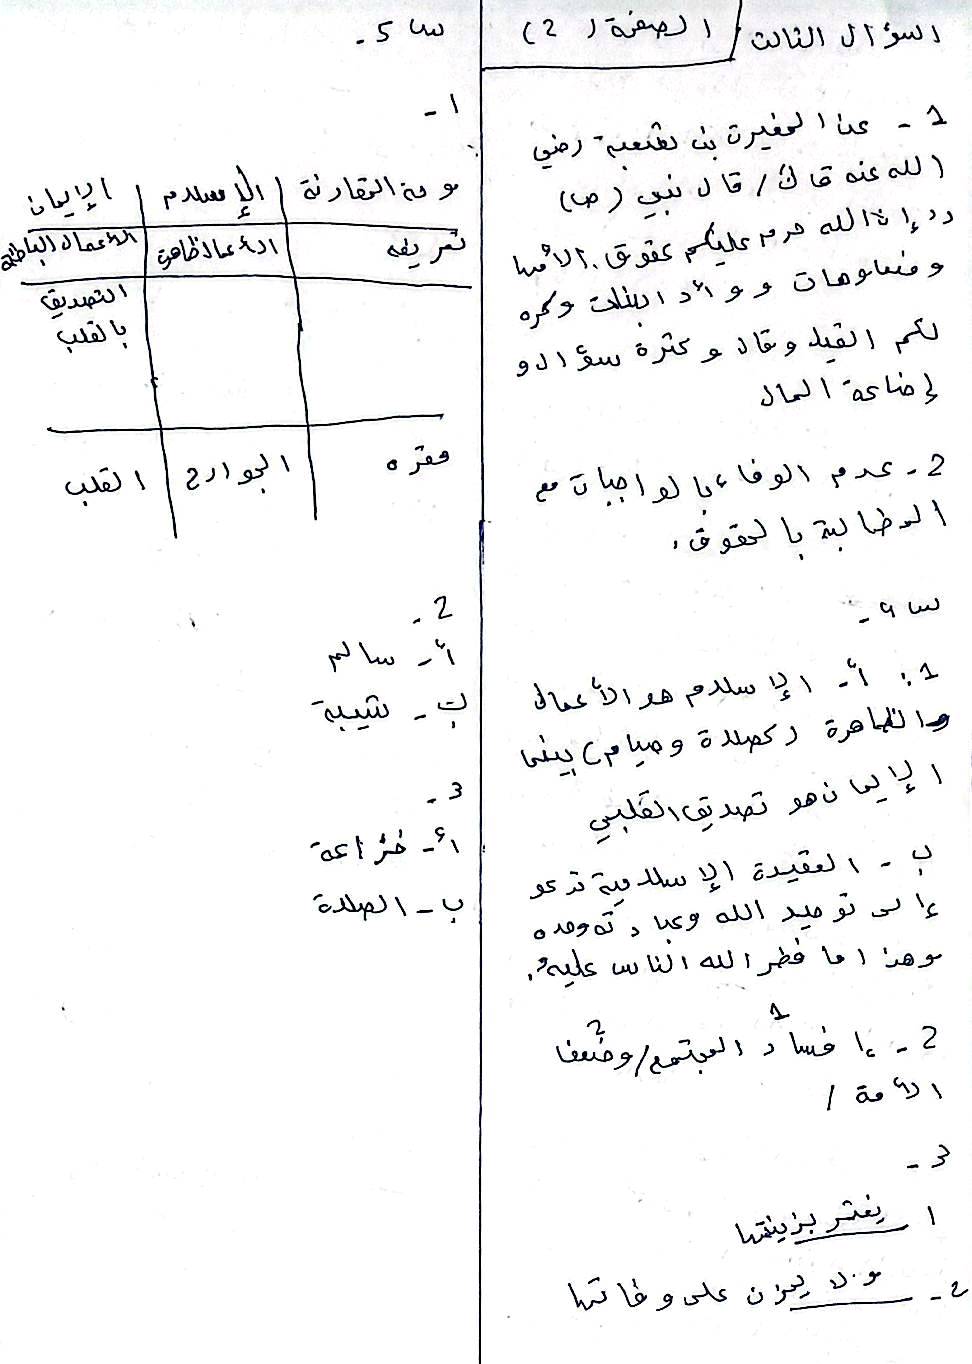 السؤال الثالث / الصفحة (2)
1 - عن المغيرة بن شعبة رضي
الله عنه قال / قال نبي (ص)
" إن الله حرم عليكم عقوق الأمها
ومنعوهات و وأد البنات وكره
لكم القيل وقال وكثرة سؤال و
إضاعة المال
2 - عدم الوفاء بالواجبات مع
المطالبة بالحقوق.
س 4 -
1: أ - الإسلام هو الأعمال
الظاهرة (كصلاة وصيام) بينما
الإيمان هو تصديق القلبي
ب - العقيدة الإسلامية تدعو
إلى توحيد الله وعبادته وحده
وهذا ما فطر الله الناس عليه.
1 2
2 - إفساد المجتمع / وضعفا
الأمة /
3 -
1 يغتر بزينتها
2 - ولا يحزن على وفاتها
س 5 -
1 -
وجه المقارنة | الإسلام | الإيمان
تعريفه | الأعمال ظاهرة | الأعمال الباطنة
التصديق
بالقلب
مقره | الجوارح | القلب
2 -
أ - سالم
ب - شيبة
3 -
أ - خزاعة
ب - الصلاة